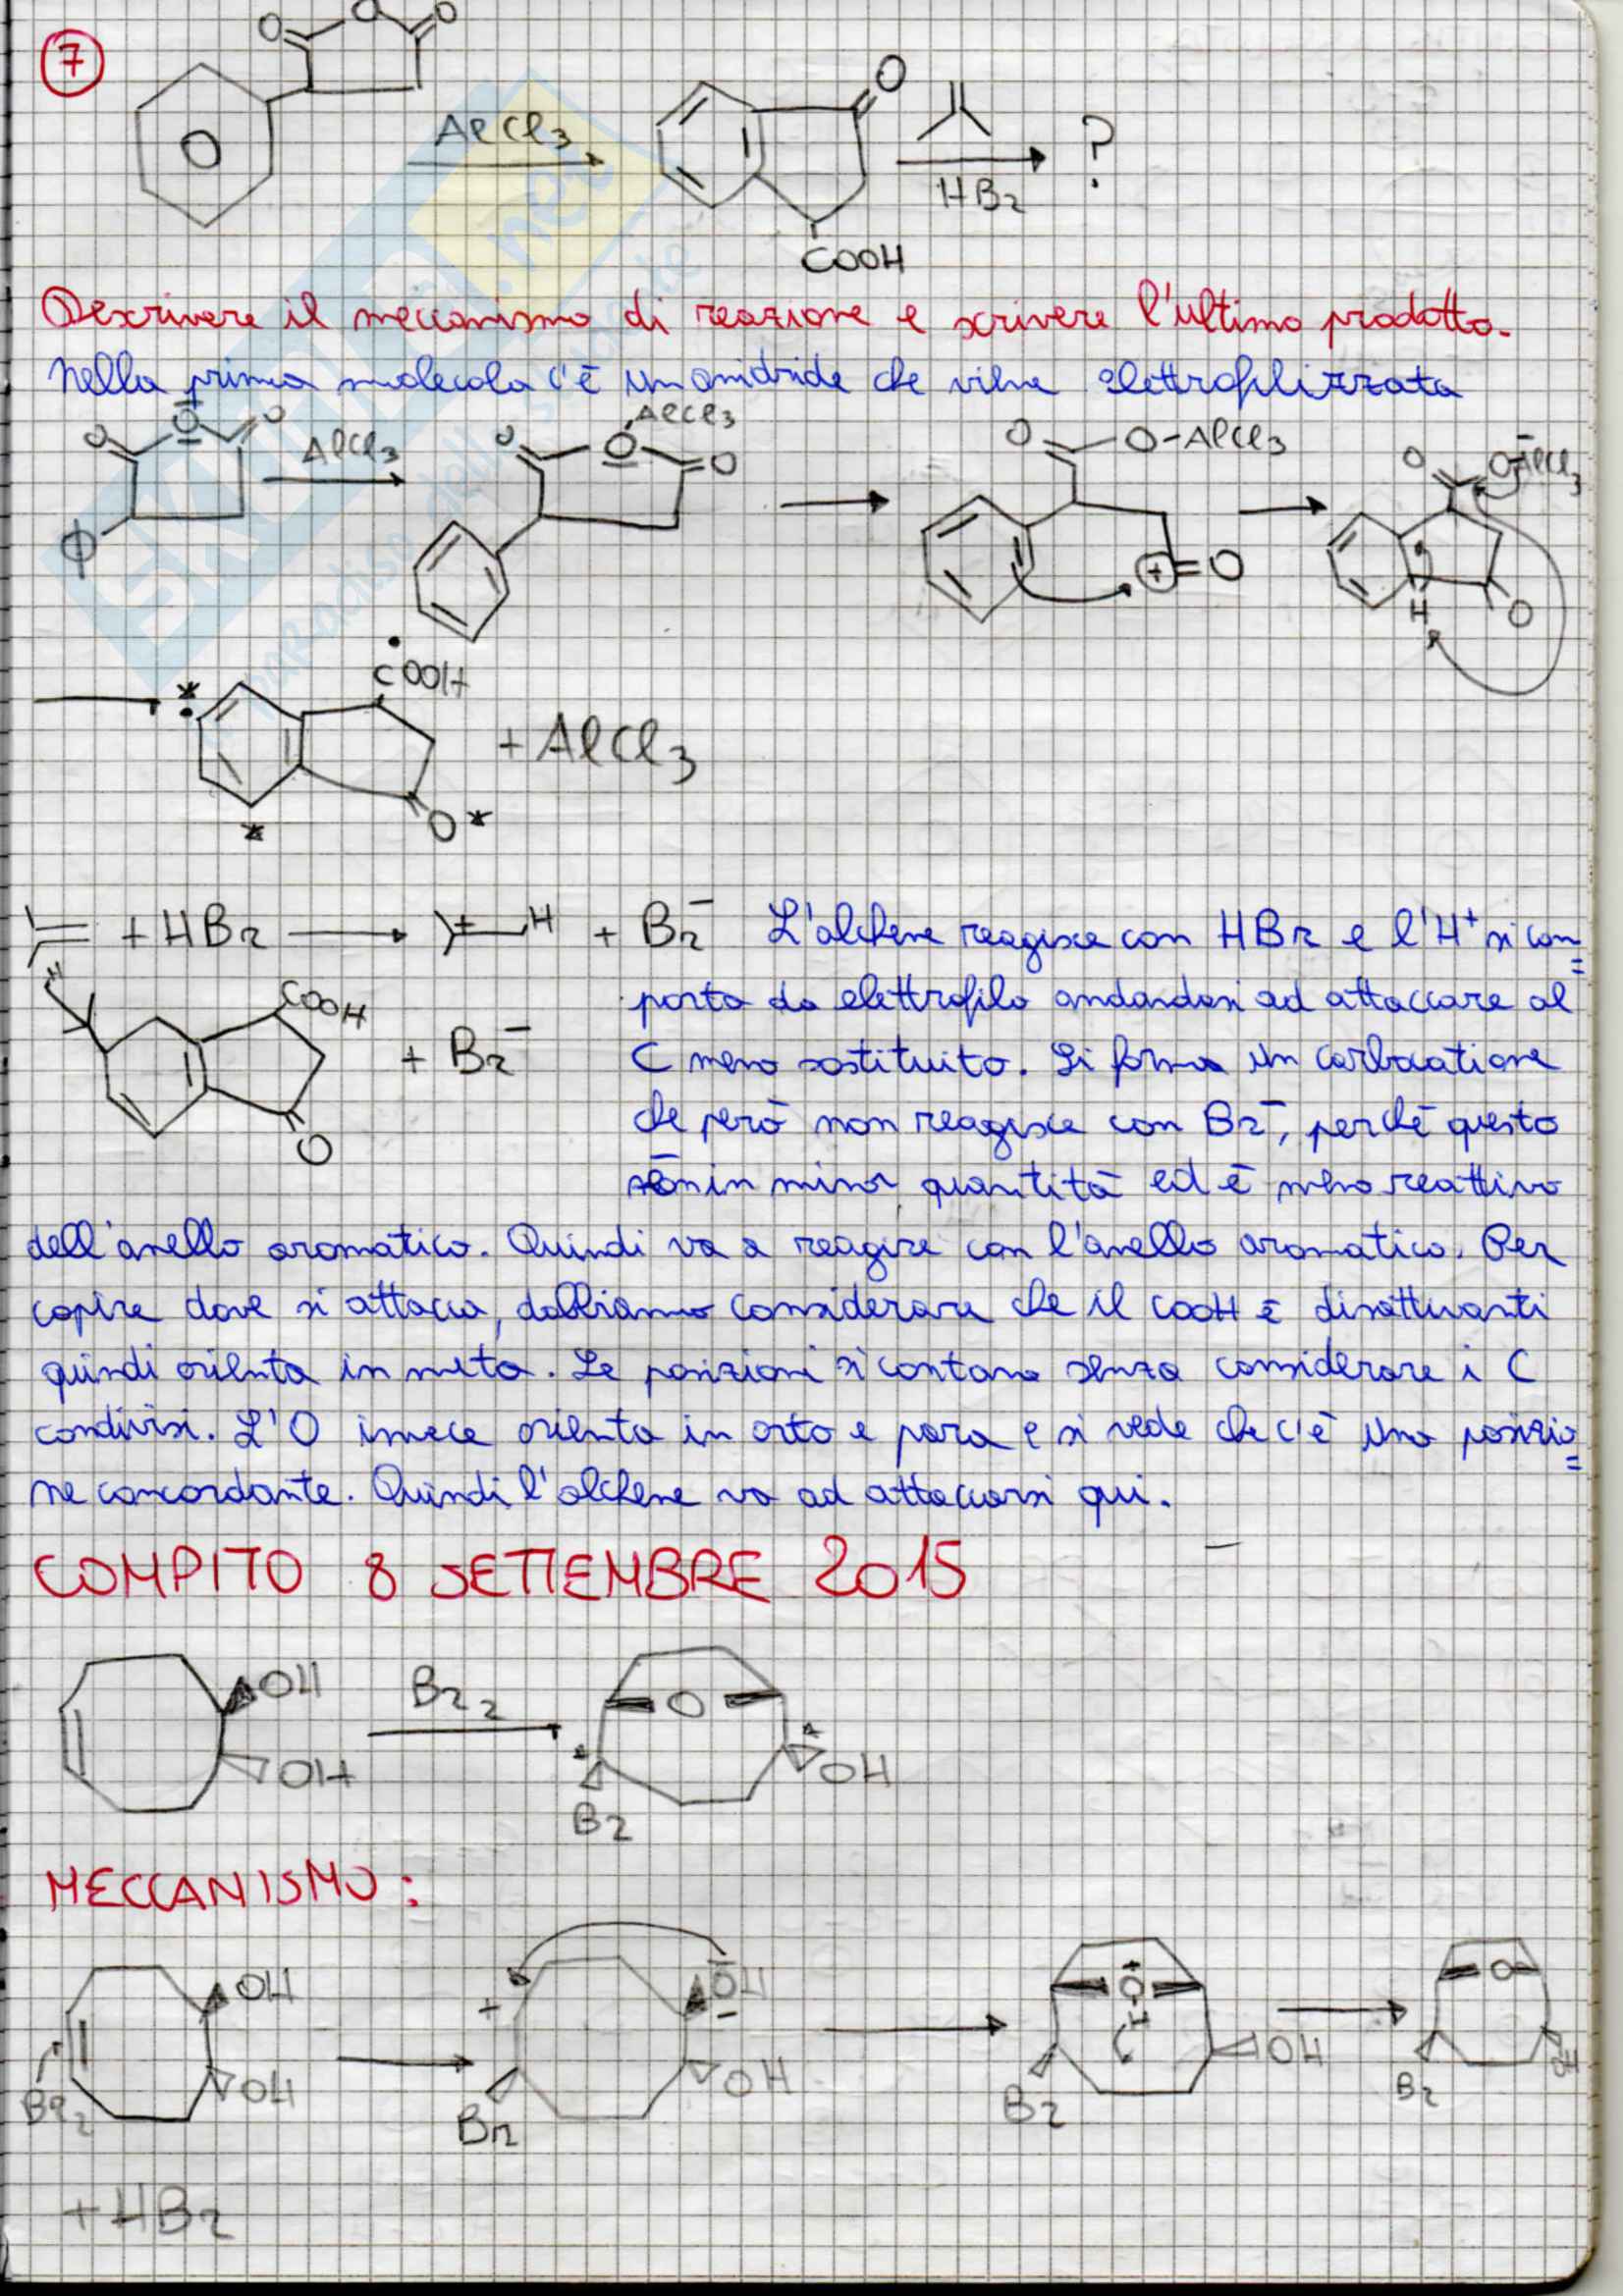 7
O O O
AlCl3
O
HBr
?
COOH
Descrivere il meccanismo di reazione e scrivere l'ultimo prodotto.
Nella prima molecola c'è un anidride che viene elettrofilizzata
O O O AlCl3 O O O AlCl3 O O-AlCl3 O O AlCl3
ϕ + =O H O
COOH
* + AlCl3
* O *
+ HBr + H + Br⁻ L'alchene reagisce con HBr e l'H⁺ si com=
porta da elettrofilo andandosi ad attaccare al
H COOH + Br⁻ C meno sostituito. Si forma un carbocatione
che però non reagisce con Br⁻, perché questo
O
è in minor quantità ed è meno reattivo
dell'anello aromatico. Quindi va a reagire con l'anello aromatico. Per
capire dove si attacca, dobbiamo considerare che il COOH è disattivanti
quindi orienta in meta. Le posizioni si contano senza considerare i C
condivisi. L'O invece orienta in orto e para e si vede che c'è una posizio=
ne concordante. Quindi l'alchene va ad attaccarsi qui.
COMPITO 8 SETTEMBRE 2015
OH Br2 O
OH * * OH
Br
MECCANISMO:
OH + OH O O
Br2 OH Br OH H Br OH Br OH
+ HBr
SKUOLA.net
paradiso dello studente